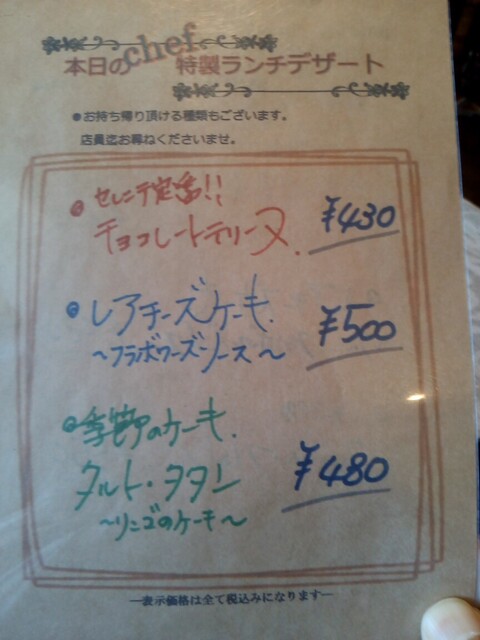 本日のchef特製ランチデザート
●お持ち帰り頂ける種類もございます。
店員迄お尋ねくださいませ。
セレニテ定番!!
チョコレートテリーヌ. ¥430
レアチーズケーキ.
～フランボワーズソース～ ¥500
季節のケーキ.
タルト・タタン ¥480
～リンゴのケーキ～
―表示価格は全て税込みになります―